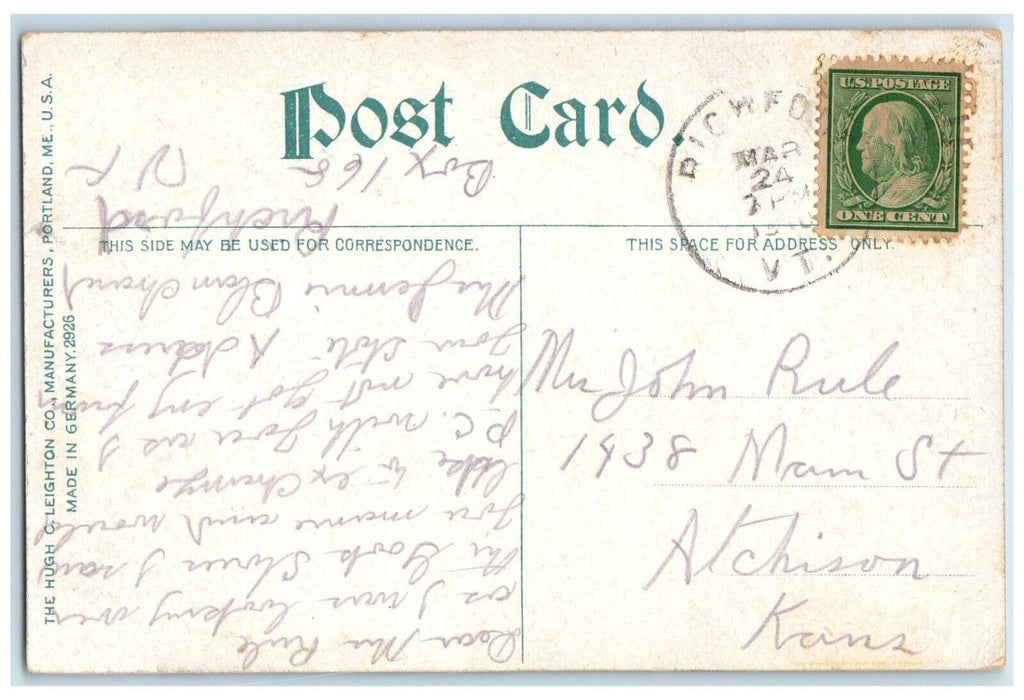 Post Card.
THIS SIDE MAY BE USED FOR CORRESPONDENCE.
THIS SPACE FOR ADDRESS ONLY.
THE HUGH C. LEIGHTON CO., MANUFACTURERS, PORTLAND, ME., U.S.A.
MADE IN GERMANY. 2926
U.S. POSTAGE
ONE CENT
RICHFO
MAR
24
7 PM
VT.
Mrs John Rule
1938 Main St
Atchison
Kans
Dear Mrs Rule
as I was looking over
the York Store I say
you mame and would
like to exchange
P.C. with you as I
have not got eny from
your state Address
Mrs Jennie Blanchard
Richford
Box 165 Vt